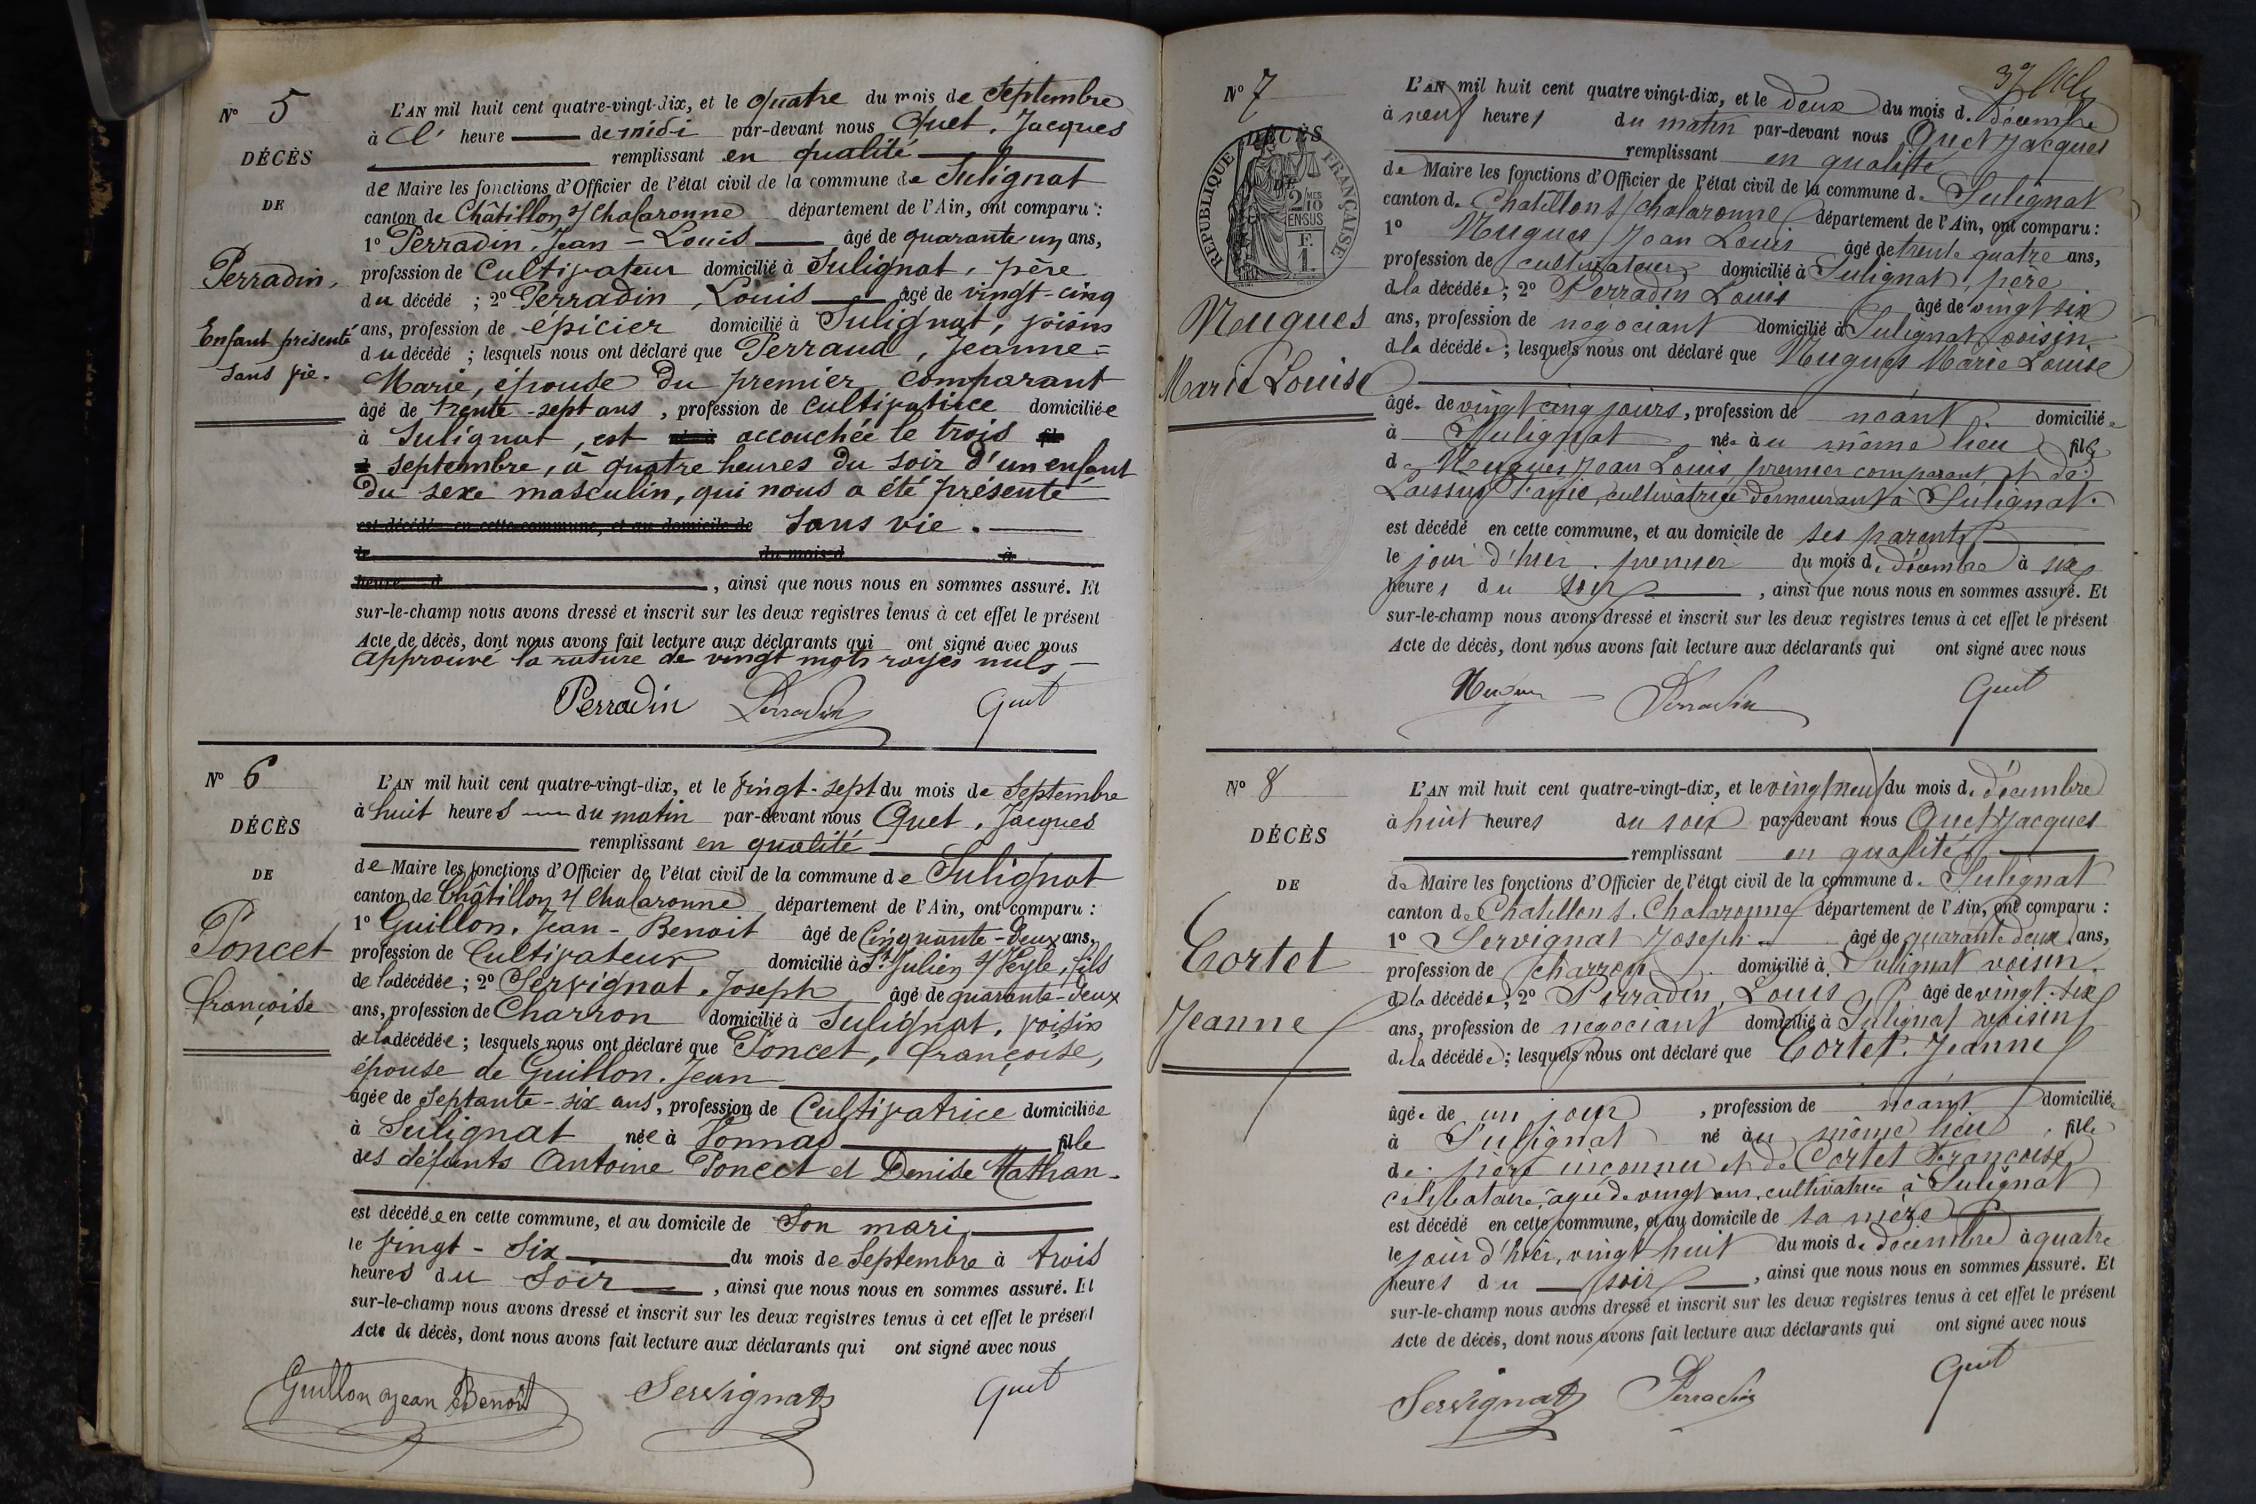 N° 5
DÉCÈS
DE
Perradin,
Enfant présenté
sans vie.
L'AN mil huit cent quatre-vingt-dix, et le quatre du mois de Septembre
à l' heure de midi par-devant nous Quet, Jacques
remplissant en qualité
de Maire les fonctions d'Officier de l'état civil de la commune de Sulignat
canton de Châtillon s/ Chalaronne département de l'Ain, ont comparu :
1° Perradin, Jean-Louis âgé de quarante un ans,
profession de Cultivateur domicilié à Sulignat, père
du décédé ; 2° Perradin, Louis âgé de vingt-cinq
ans, profession de épicier domicilié à Sulignat, voisin
du décédé ; lesquels nous ont déclaré que Perraud, Jeanne=
Marie, épouse du premier comparant
âgé de trente-sept ans, profession de Cultivatrice domiciliée
à Sulignat, est accouchée le trois
septembre, à quatre heures du soir d'un enfant
du sexe masculin, qui nous a été présenté
est décédé en cette commune, et au domicile de sans vie.
le du mois d à
heure d , ainsi que nous nous en sommes assuré. Et
sur-le-champ nous avons dressé et inscrit sur les deux registres tenus à cet effet le présent
Acte de décès, dont nous avons fait lecture aux déclarants qui ont signé avec nous
Approuvé la rature de vingt mots rayés nuls
Perradin Perradin Quet
N° 6
DÉCÈS
DE
Poncet
Françoise
L'AN mil huit cent quatre-vingt-dix, et le vingt-sept du mois de Septembre
à huit heures du matin par-devant nous Quet, Jacques
remplissant en qualité
de Maire les fonctions d'Officier de l'état civil de la commune de Sulignat
canton de Châtillon s/ Chalaronne département de l'Ain, ont comparu :
1° Guillon, Jean-Benoit âgé de Cinquante-deux ans,
profession de Cultivateur domicilié à St Julien s/ Veyle, fils
de la décédée ; 2° Servignat, Joseph âgé de quarante-deux
ans, profession de Charron domicilié à Sulignat, voisin
de la décédée ; lesquels nous ont déclaré que Poncet, Françoise,
épouse de Guillon, Jean
âgée de Septante-six ans, profession de Cultivatrice domiciliée
à Sulignat née à Vonnas fille
des défunts Antoine Poncet et Denise Mathan.
est décédée en cette commune, et au domicile de Son mari
le vingt-six du mois de Septembre à trois
heures du Soir , ainsi que nous nous en sommes assuré. Et
sur-le-champ nous avons dressé et inscrit sur les deux registres tenus à cet effet le présent
Acte de décès, dont nous avons fait lecture aux déclarants qui ont signé avec nous
Guillon Jean Benoit Servignat Quet
N° 7
DÉCÈS
RÉPUBLIQUE FRANÇAISE
DE
2/10
EN SUS
F.
1.
Nugues
Marie Louise
L'AN mil huit cent quatre vingt-dix, et le deux du mois d. décembre
à neuf heures du matin par-devant nous Quet Jacques
remplissant en qualité
de Maire les fonctions d'Officier de l'état civil de la commune d. Sulignat
canton d. Chatillon s/ chalaronne département de l'Ain, ont comparu :
1° Nugues Jean Louis âgé de trente quatre ans,
profession de cultivateur domicilié à Sulignat, père
d la décédée ; 2° Perradin Louis âgé de vingt six
ans, profession de négociant domicilié à Sulignat, voisin
d la décédée ; lesquels nous ont déclaré que Nugues Marie Louise
âgée de vingt cinq jours, profession de néant domiciliée
à Sulignat née au même lieu fille
de Nugues Jean Louis premier comparant et de
cultivatrice demeurant à Sulignat.
est décédé en cette commune, et au domicile de ses parents
le jour d'hier, premier du mois de décembre à six
heures du soir , ainsi que nous nous en sommes assuré. Et
sur-le-champ nous avons dressé et inscrit sur les deux registres tenus à cet effet le présent
Acte de décès, dont nous avons fait lecture aux déclarants qui ont signé avec nous
Perradin Quet
N° 8
DÉCÈS
DE
Cortet
Jeanne
L'AN mil huit cent quatre-vingt-dix, et le vingt neuf du mois d. décembre
à huit heures du soir par-devant nous Quet Jacques
remplissant en qualité
de Maire les fonctions d'Officier de l'état civil de la commune d. Sulignat
canton de Chatillon s. Chalaronne département de l'Ain, ont comparu :
1° Servignat Joseph âgé de quarante deux ans,
profession de charron domicilié à Sulignat voisin
d la décédée ; 2° Perradin, Louis âgé de vingt-six
ans, profession de négociant domicilié à Sulignat voisin
de la décédée ; lesquels nous ont déclaré que Cortet, Jeanne
âgée de un jour , profession de néant domiciliée
à Sulignat né au même lieu, fille
de père inconnu et de Cortet Françoise
célibataire, âgée de vingt ans, cultivatrice à Sulignat
est décédé en cette commune, et au domicile de sa mère
le jour d'hier, vingt huit du mois de décembre à quatre
heures du soir , ainsi que nous nous en sommes assuré. Et
sur-le-champ nous avons dressé et inscrit sur les deux registres tenus à cet effet le présent
Acte de décès, dont nous avons fait lecture aux déclarants qui ont signé avec nous
Servignat Perradin Quet